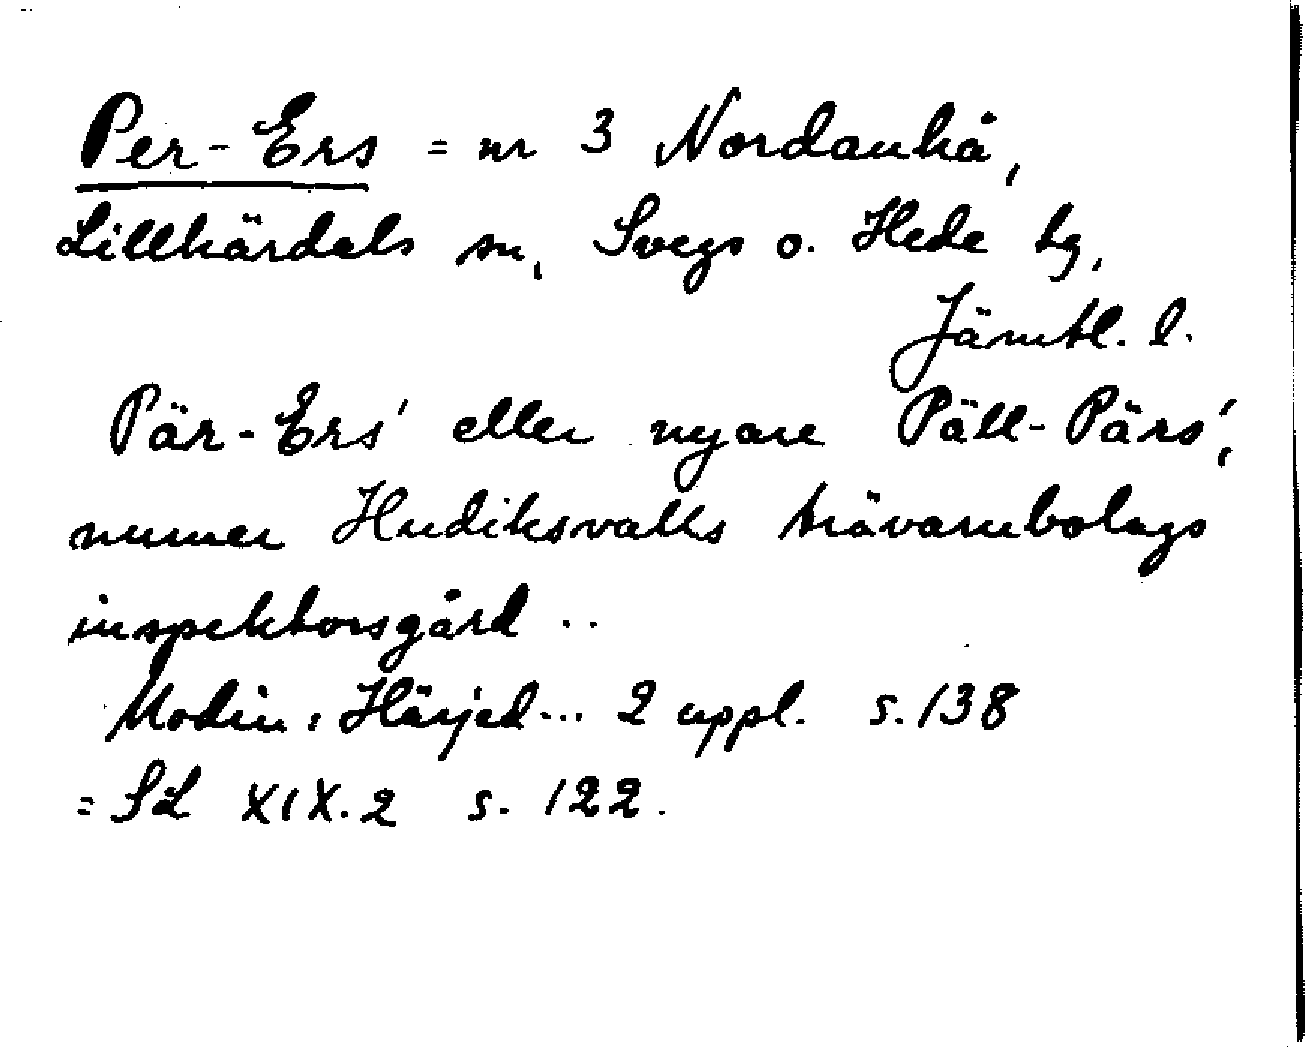 Per-Ers = nr 3 Nordanhå,
Lillhärdals sn, Svegs o. Hede tg,
Jämtl. l.
Pär-Ers' eller nyare Päll-Pärs',
numer Hudiksvalls trävarubolags
inspektorsgård ..
Modin, Härjed... 2 uppl. s. 138
= SL XIX.2 s. 122.